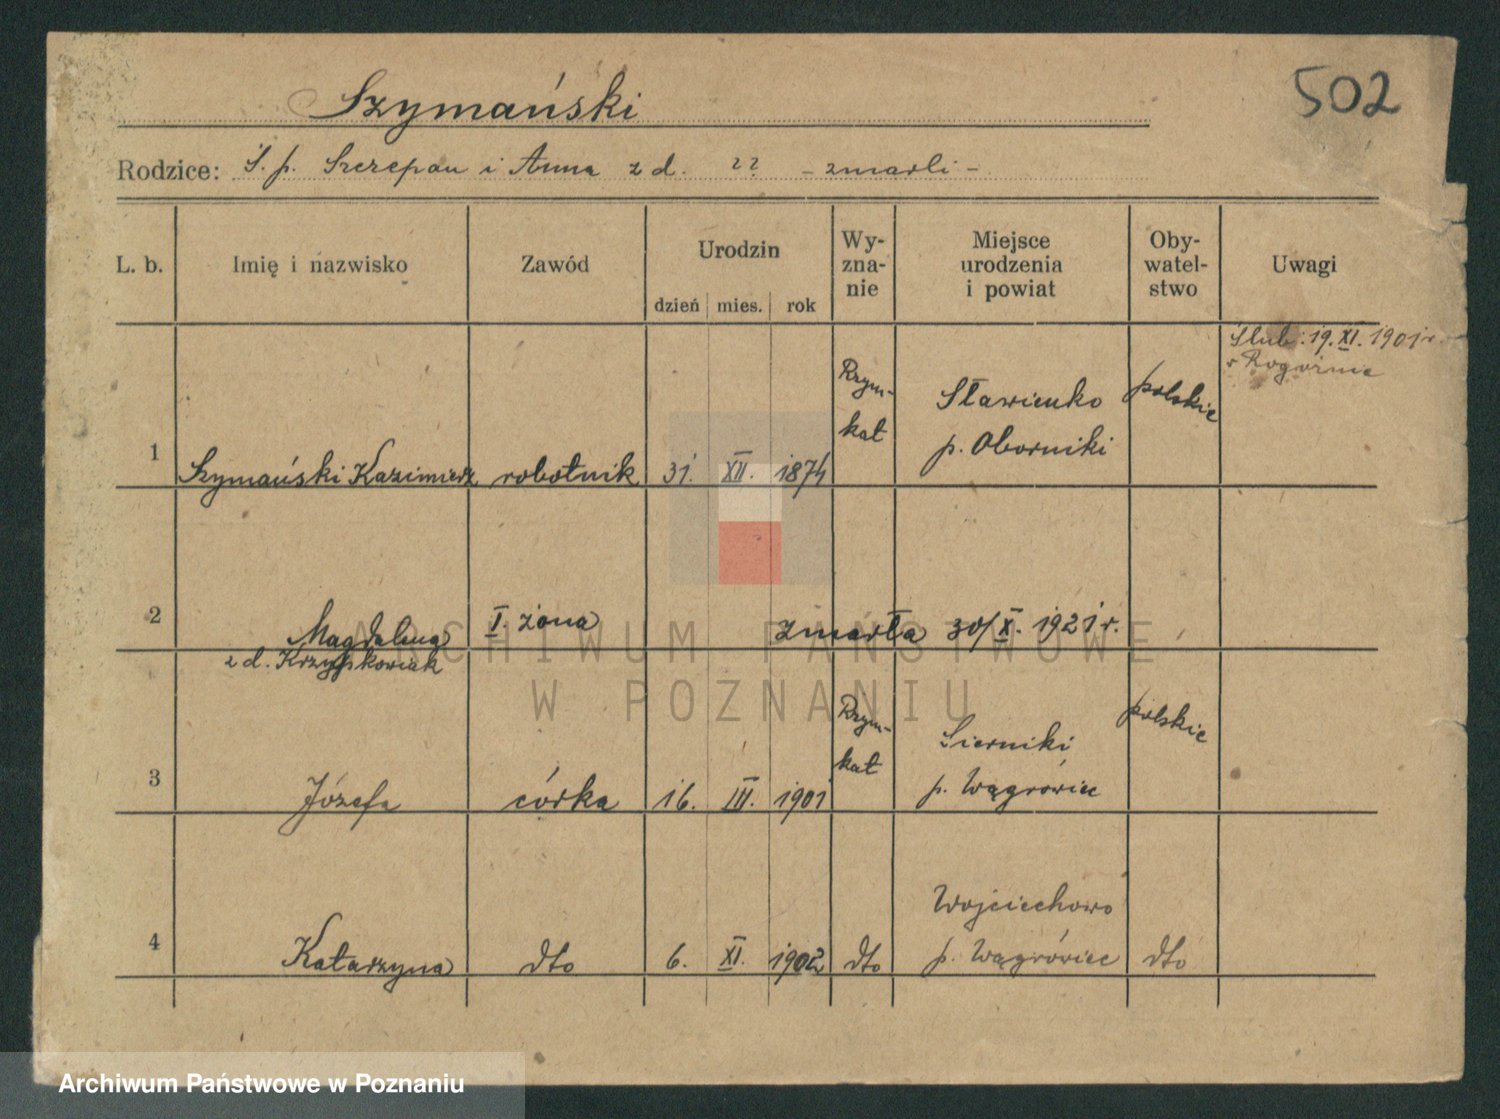 502
Szymański
Rodzice: Ś. p. Szczepan i Anna z d. ?? - zmarli -
L. b.
Imię i nazwisko
Zawód
Urodzin
dzień mies. rok
Wy-
zna-
nie
Miejsce
urodzenia
i powiat
Oby-
watel-
stwo
Uwagi
1
Szymański Kazimierz
robotnik
31. XII. 1874
Rzym-
kat
Sławienko
p. Oborniki
polskie
Ślub: 19. XI. 1901 r.
w Rogoźnie
2
Magdalena
z d. Krzyżkowiak
I. żona
zmarła 30/X. 1921 r.
3
Józefa
córka
16. III. 1901
Rzym-
kat
Sierniki
p. Wągrówiec
polskie
4
Katarzyna
dto
6. XI. 1902
dto
Wojciechowo
p. Wągrówiec
dto
ARCHIWUM PAŃSTWOWE
W POZNANIU
Archiwum Państwowe w Poznaniu